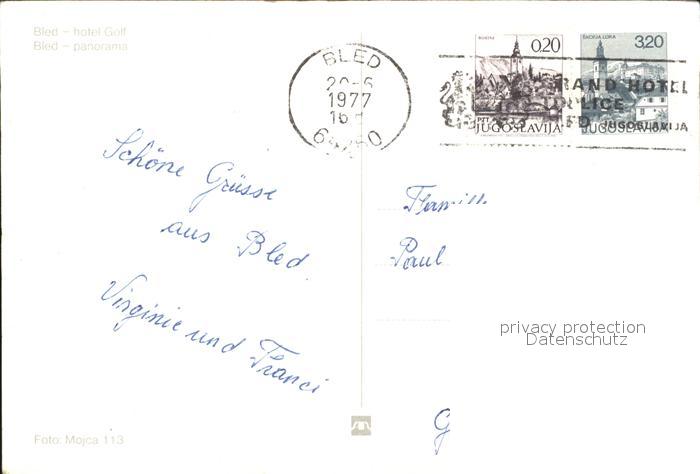 Bled – hotel Golf
Bled – panorama
BLED
20-6
1977
64260
0.20
PTT JUGOSLAVIJA
ŠKOFJA LOKA
3,20
JUGOSLAVIJA
GRAND HOTEL
JUGOSLAVIJA
Schöne Grüsse
aus Bled.
Virginie und Franci
Familie
Paul
privacy protection
Datenschutz
G
Foto: Mojca 113